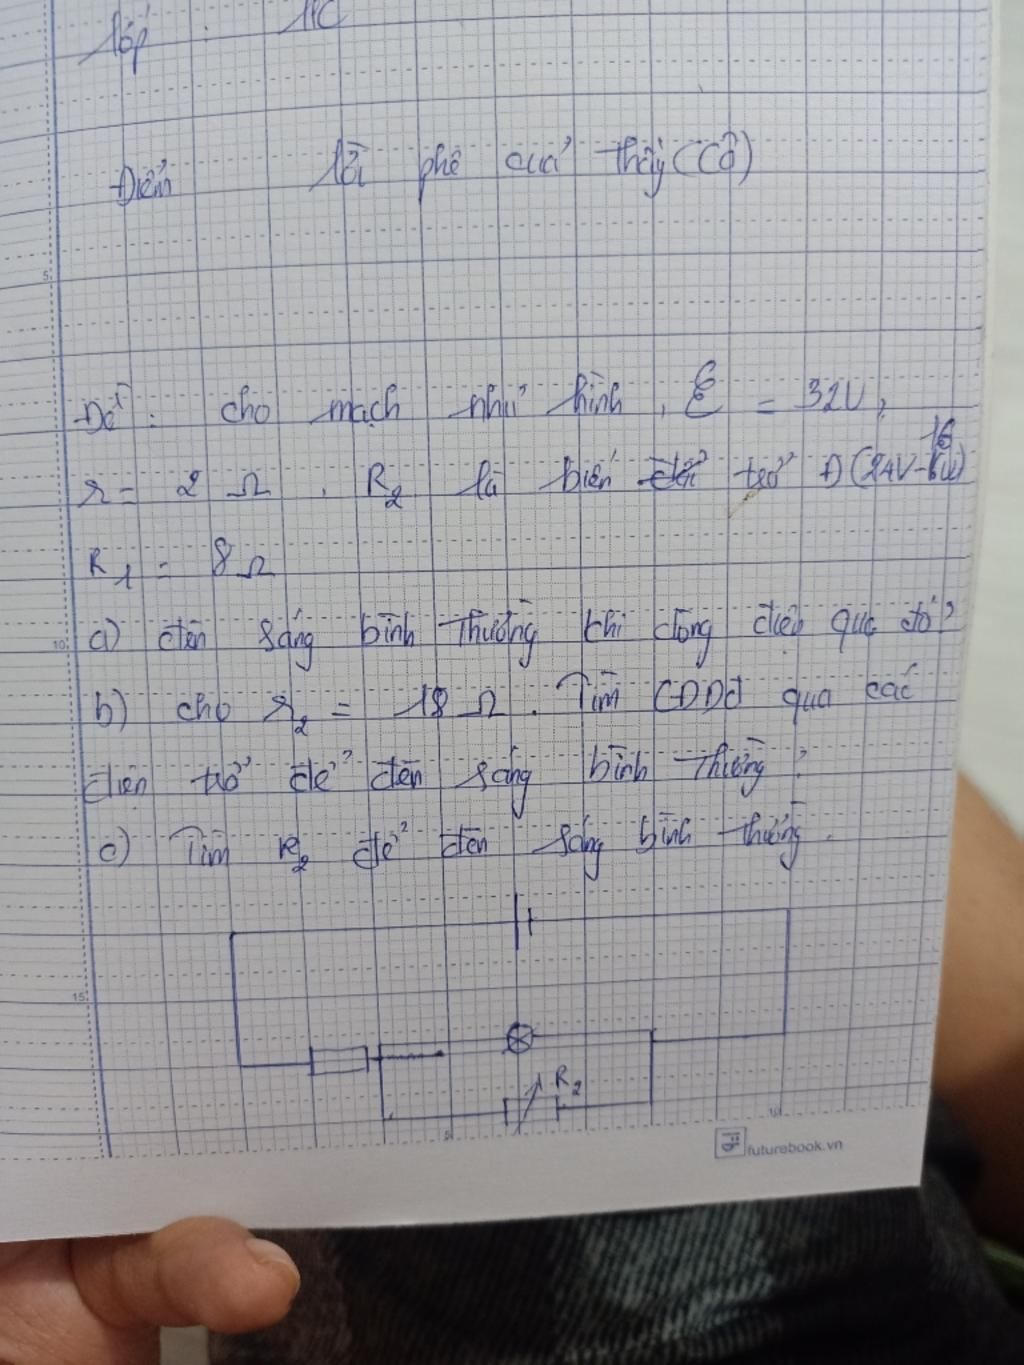 lớp : 11C
Điểm lời phê của thầy (cô)
5
Đề : cho mạch như hình , ℰ = 32V ,
r = 2 Ω . R2 là biến trở Đ(24V-16W)
R1 = 8Ω
a) đèn sáng bình thường khi dòng điện qua đó?
10
b) cho r2 = 18 Ω . Tìm CĐDĐ qua các
điện trở để đèn sáng bình thường ?
c) Tìm R2 để đèn sáng bình thường .
15
R2
5
10
futurebook.vn